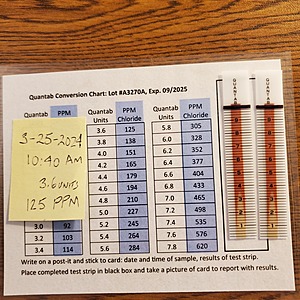 Quantab Conversion Chart: Lot #A3270A, Exp. 09/2025
Quantab PPM Quantab PPM Quantab PPM
Units Chloride Units Chloride
3-25-2024
10:40 AM
3.6 UNITS
125 PPM
3.6 125 5.8 305
3.8 138 6.0 328
4.0 151 6.2 352
4.2 165 6.4 377
4.4 179 6.6 404
4.6 194 6.8 433
4.8 210 7.0 465
5.0 227 7.2 498
3.0 92 5.2 245 7.4 535
3.2 103 5.4 264 7.6 575
3.4 114 5.6 284 7.8 620
QUANTAB QUANTAB
Write on a post-it and stick to card: date and time of sample, results of test strip.
Place completed test strip in black box and take a picture of card to report with results.